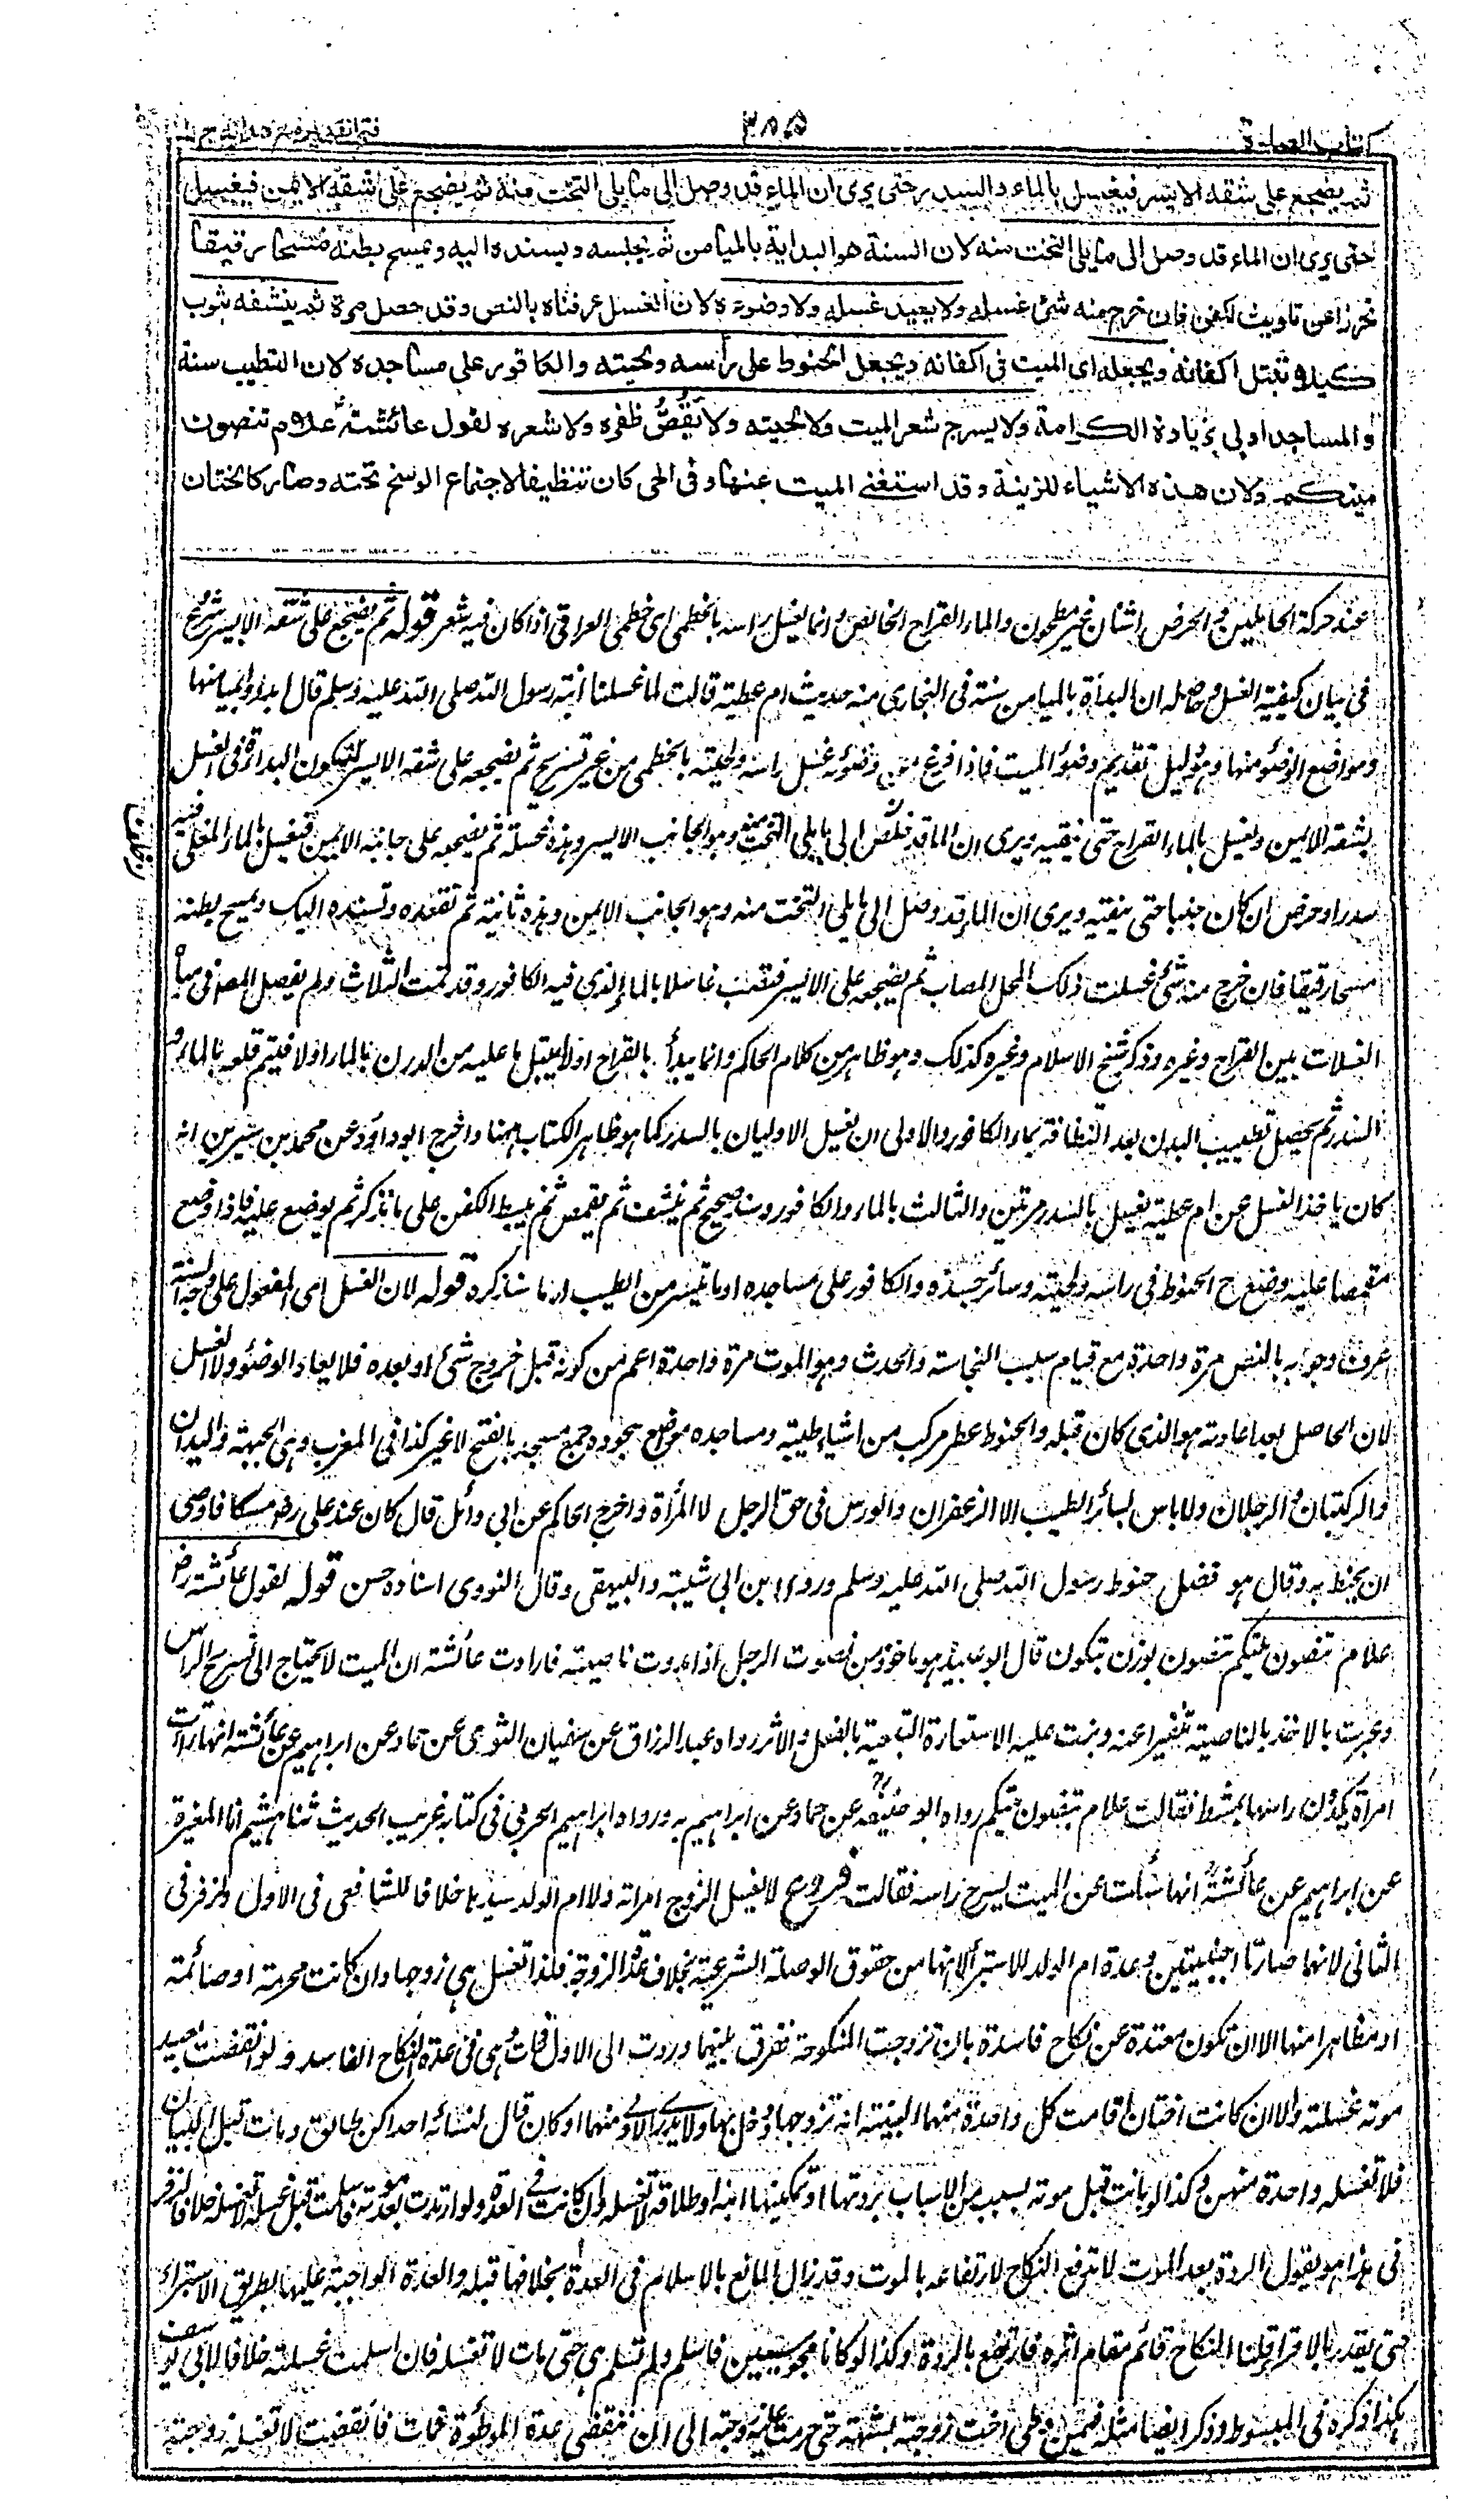 كتاب الصلوة
٣٨٥
فتح القدير مع هداية ج
ثم يضجع على شقه الايسر فيغسل بالماء والسدر حتى يرى ان الماء قد وصل الى ما يلى التخت منه ثم يضجع على شقه الايمن فيغسل
حتى يرى ان الماء قد وصل الى ما يلى التخت منه لان السنة هو البداية بالميامن ثم يجلسه ويسنده اليه ويمسح بطنه مسحا رقيقا
تحرزا عن تلويث الكفن فان خرج منه شئ غسله ولا يعيد غسله ولا وضوءه لان الغسل عرفناه بالنص وقد حصل مرة ثم ينشفه بثوب
كيلا تبتل اكفانه ويجعله اى الميت فى اكفانه ويجعل الحنوط على رأسه ولحيته والكافور على مساجده لان التطيب سنة
والمساجد اولى بزيادة الكرامة ولا يسرح شعر الميت ولا لحيته ولا يقص ظفره ولا شعره لقول عائشة علام تنصون
ميتكم ولان هذه الاشياء للزينة وقد استغنى الميت عنها وفى الحى كان تنظيفا لاجتماع الوسخ تحته وصار كالختان
عند حركة الحاملين والحرض اشنان غير مطحون والماء القراح الخالص وانما يغسل راسه بالخطمى اى خطمى العراق اذا كان فيه شعر قوله ثم يضجع على شقه الايسر شروع
فى بيان كيفية الغسل وحاصله ان البداءة بالميامن سنة فى البخارى من حديث ام عطية قالت لما غسلنا ابنة رسول الله صلى الله عليه وسلم قال ابدأوا بميامنها
ومواضع الوضوء منها وهو دليل تقديم وضوء الميت فاذا فرغ من وضوئه غسل راسه ولحيته بالخطمى من غير تسريح ثم يضجعه على شقه الايسر لتكون البداءة فى الغسل
بشقه الايمن ويغسل بالماء القراح حتى ينقيه ويرى ان الماء قد خلص الى ما يلى التخت منه وهو الجانب الايسر وهذه غسلة ثم يضجعه على جانبه الايمن فيغسل بالماء المغلى فيه
سدر او حرض ان كان جنبا حتى ينقيه ويرى ان الماء قد وصل الى ما يلى التخت منه وهو الجانب الايمن وهذه ثانية ثم تقعده وتسنده اليك وتمسح بطنه
مسحا رقيقا فان خرج منه شئ غسلت ذلك المحل المصاب ثم يضجعه على الايسر فتصب غاسلا بالماء الذى فيه الكافور وقد تمت الثلاث ولم يفصل المصنف فى مياه
الغسلات بين القراح وغيره وذكر شيخ الاسلام وغيره كذلك وهو ظاهر من كلام الحاكم وانما يبدأ بالقراح اولا ليبتل ما عليه من الدرن بالماء اولا فيتم قلعه بالماء و
السدر ثم يحصل تطييب البدن بعد النظافة بماء الكافور والاولى ان يغسل الاوليان بالسدر كما هو ظاهر الكتاب ههنا واخرج ابو داود عن محمد بن سيرين انه
كان ياخذ الغسل عن ام عطية يغسل بالسدر مرتين والثالث بالماء والكافور وسنده صحيح ثم ينشف ثم يقمص ثم يبسط الكفن على ما نذكر ثم يوضع عليه فاذا وضع
مقمصا عليه وضع ح الحنوط فى راسه ولحيته وسائر جسده والكافور على مساجده او ما تيسر من الطيب اما سنذكره قوله لان الغسل اى المفعول على وجه السنة
عرف وجوبه بالنص مرة واحدة مع قيام سبب النجاسة والحدث وهو الموت مرة واحدة اعم من كونه قبل خروج شئ او بعده فلا يعاد الوضوء ولا الغسل
لان الحاصل بعد اعادته هو الذى كان قبله والحنوط عطر مركب من اشياء طيبة ومساجده مواضع سجوده جمع مسجد بالفتح لا غير كذا فى المغرب وهى الجبهة واليدان
والركبتان والرجلان ولا باس بسائر الطيب الا الزعفران والورس فى حق الرجل لا المرأة واخرج الحاكم عن ابى وائل قال كان عند على رضه مسكا فاوصى
ان يحنط به وقال هو فضل حنوط رسول الله صلى الله عليه وسلم ورواه ابن ابى شيبة والبيهقى وقال النووى اسناده حسن قوله لقول عائشة رض
علام تنصون ميتكم تنصون بوزن تبكون قال ابو عبيد هو ماخوذ من نصوت الرجل اذا مددت ناصيته فارادت عائشة ان الميت لا يحتاج الى تسريح الراس
وعبرت بالاخذ بالناصية تنفيرا عنه وبنت عليه الاستعارة التبعية بالفعل والاثر رواه عبد الرزاق عن سفيان الثورى عن حماد عن ابراهيم عن عائشة انها رات
امراة يكدون راسها بمشط فقالت علام تنصون ميتكم رواه ابو حنيفه عن حماد عن ابراهيم به ورواه ابراهيم الحربى فى كتابه غريب الحديث ثنا هشيم انا المغيرة
عن ابراهيم عن عائشة انها سألت عن الميت يسرح راسه فقالت فروع لا يغسل الزوج امراته ولا ام الولد سيدها خلافا للشافعى فى الاول ولزفر فى
الثانى لانهما صارتا اجنبيتين وعدة ام الولد للاستبراء لانها من حقوق الوصلة الشرعية بخلاف عدة الزوجة فلذا تغسل هى زوجها وان كانت محرمة او صائمة
او مظاهرا منها الا ان تكون معتدة عن نكاح فاسدة بان تزوجت المنكوحة ففرق بينهما وردت الى الاول فمات وهى فى عدة النكاح الفاسد ولو انقضت بعيد
موته غسلته والا ان كانت اختان اقامت كل واحدة منهما البينة انه تزوجها ودخل بها ولا يدرى الاولى منهما او كان قال لنسائه احداكن طالق ومات قبل البيان
فلا تغسله واحدة منهن وكذا لو بانت قبل موته بسبب من الاسباب بردتها او تمكينها ابنه او طلاقه لا تغسله وان كانت فى العدة ولو ارتدت بعد موته فاسلمت قبل غسله لا تغسله خلافا لزفر
فى هذا هو يقول الردة بعد الموت لا ترفع النكاح لارتفاعه بالموت وقد زال المانع بالاسلام فى العدة بخلافها قبله والعدة الواجبة عليها بطريق الاستبراء
حتى يقدر بالاقراء قلنا النكاح قائم مقام اثره فارتفع بالردة وكذا لو كانا مجوسيين فاسلم ولم تسلم هى حتى مات لا تغسله فان اسلمت غسلته خلافا لابى يوسف
هكذا ذكره فى المبسوط وذكر ايضا مثله فيمن وطى اخت زوجته بشبهة حتى حرمت عليه زوجته الى ان تنقضى عدة الموطوءة فمات فانقضت لا تغسله زوجته